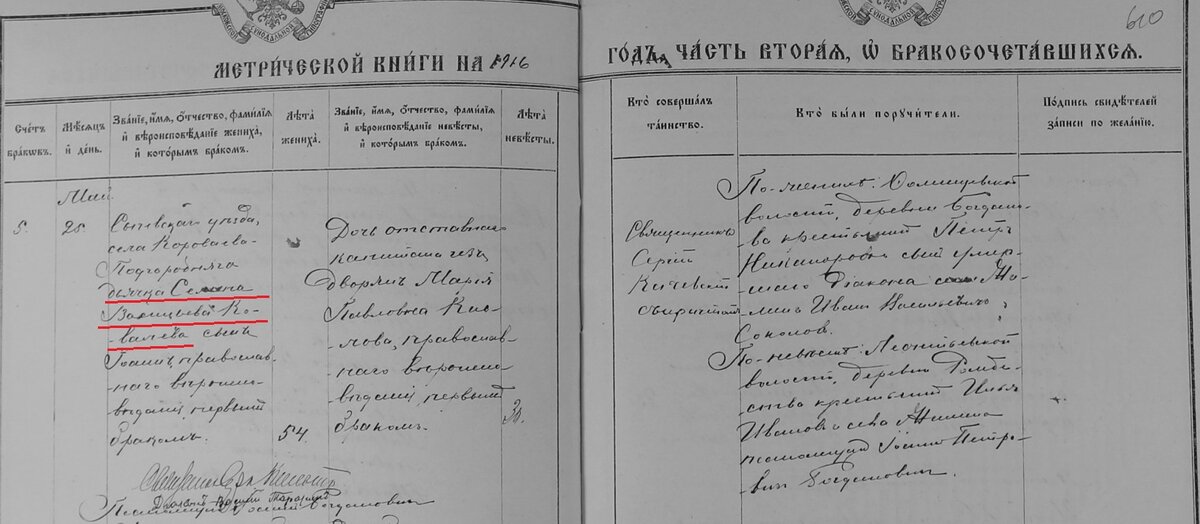 610
МЕТРИ́ЧЕСКОЙ КНИ́ГИ НА 1916
ГО́ДЪ, ЧА́СТЬ ВТОРА́Я, Ѡ҆ БРАКОСОЧЕТА́ВШИХСЯ.
Сче́тъ бра́кѡвъ.
Мѣ́сяцъ и҆ де́нь.
Зва́нїе, и҆́мя, ѻ҆́тчество, фами́лїя
и҆ вѣроисповѣ́данїе жениха̀,
и҆ кото́рымъ бра́комъ.
Лѣ́та жениха̀.
Зва́нїе, и҆́мя, ѻ҆́тчество, фами́лїя
и҆ вѣроисповѣ́данїе невѣ́сты,
и҆ кото́рымъ бра́комъ.
Лѣ́та невѣ́сты.
Кто̀ соверша́лъ
та́инство.
Кто̀ бы́ли пору́чители.
По́дпись свидѣ́телей
за́писи по жела́нїю.
Май
5.
25
Сычевскаго уѣзда,
села Короваева-
Подгороднаго
дьячка Семена
Ковалева сынъ
Іоаннъ, православ-
наго вѣроиспо-
вѣданія, первымъ
бракомъ.
54.
Дочь отставнаго
капитана изъ
Дворянъ Марія
Павловна
православ-
наго вѣроиспо-
вѣданія, первымъ
бракомъ.
Священникъ
Сергій
съ причтомъ
По женихѣ:
волости, деревни Богдано-
ва крестьянинъ Петръ
Никаноровъ сынъ умер-
шаго Діакона
Иванъ Васильевичъ
Соколовъ.
По невѣстѣ: Леонтьевской
волости, деревни
крестьянинъ Илья
Ивановъ и села
псаломщикъ Іосифъ Петро-
вичъ Богдановичъ.
Священникъ
Псаломщикъ Іосифъ Богдановичъ